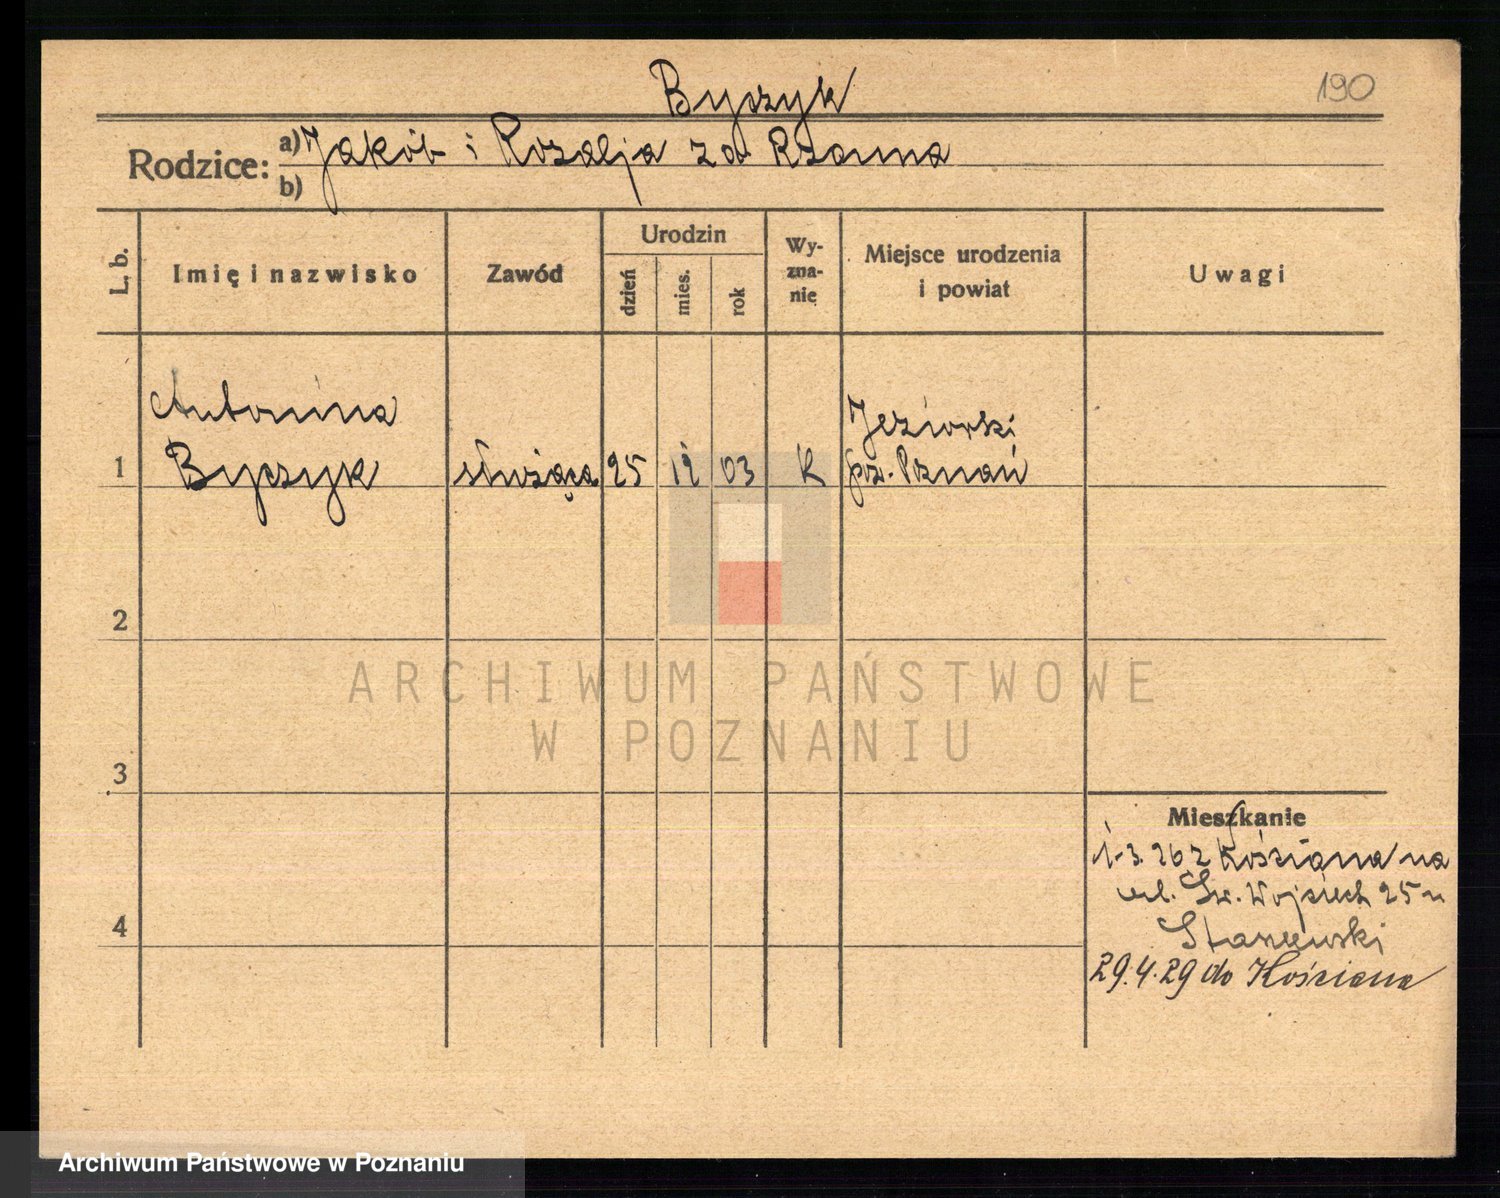 Byczyk
190
Rodzice: a) Jakób i Rozalja za
b)
L. b.
Imię i nazwisko
Zawód
Urodzin
dzień
mies.
rok
Wy-
zna-
nie
Miejsce urodzenia
i powiat
Uwagi
Antonina
1
Byczyk
służąca
25
12
03
K
Jeziorki
pow. Poznań
2
3
4
ARCHIWUM PAŃSTWOWE
W POZNANIU
Mieszkanie
1.3.26 z Kościana na
ul. Św. Wojciech 25 u
Staszewski
29.4.29 do Kościana
Archiwum Państwowe w Poznaniu